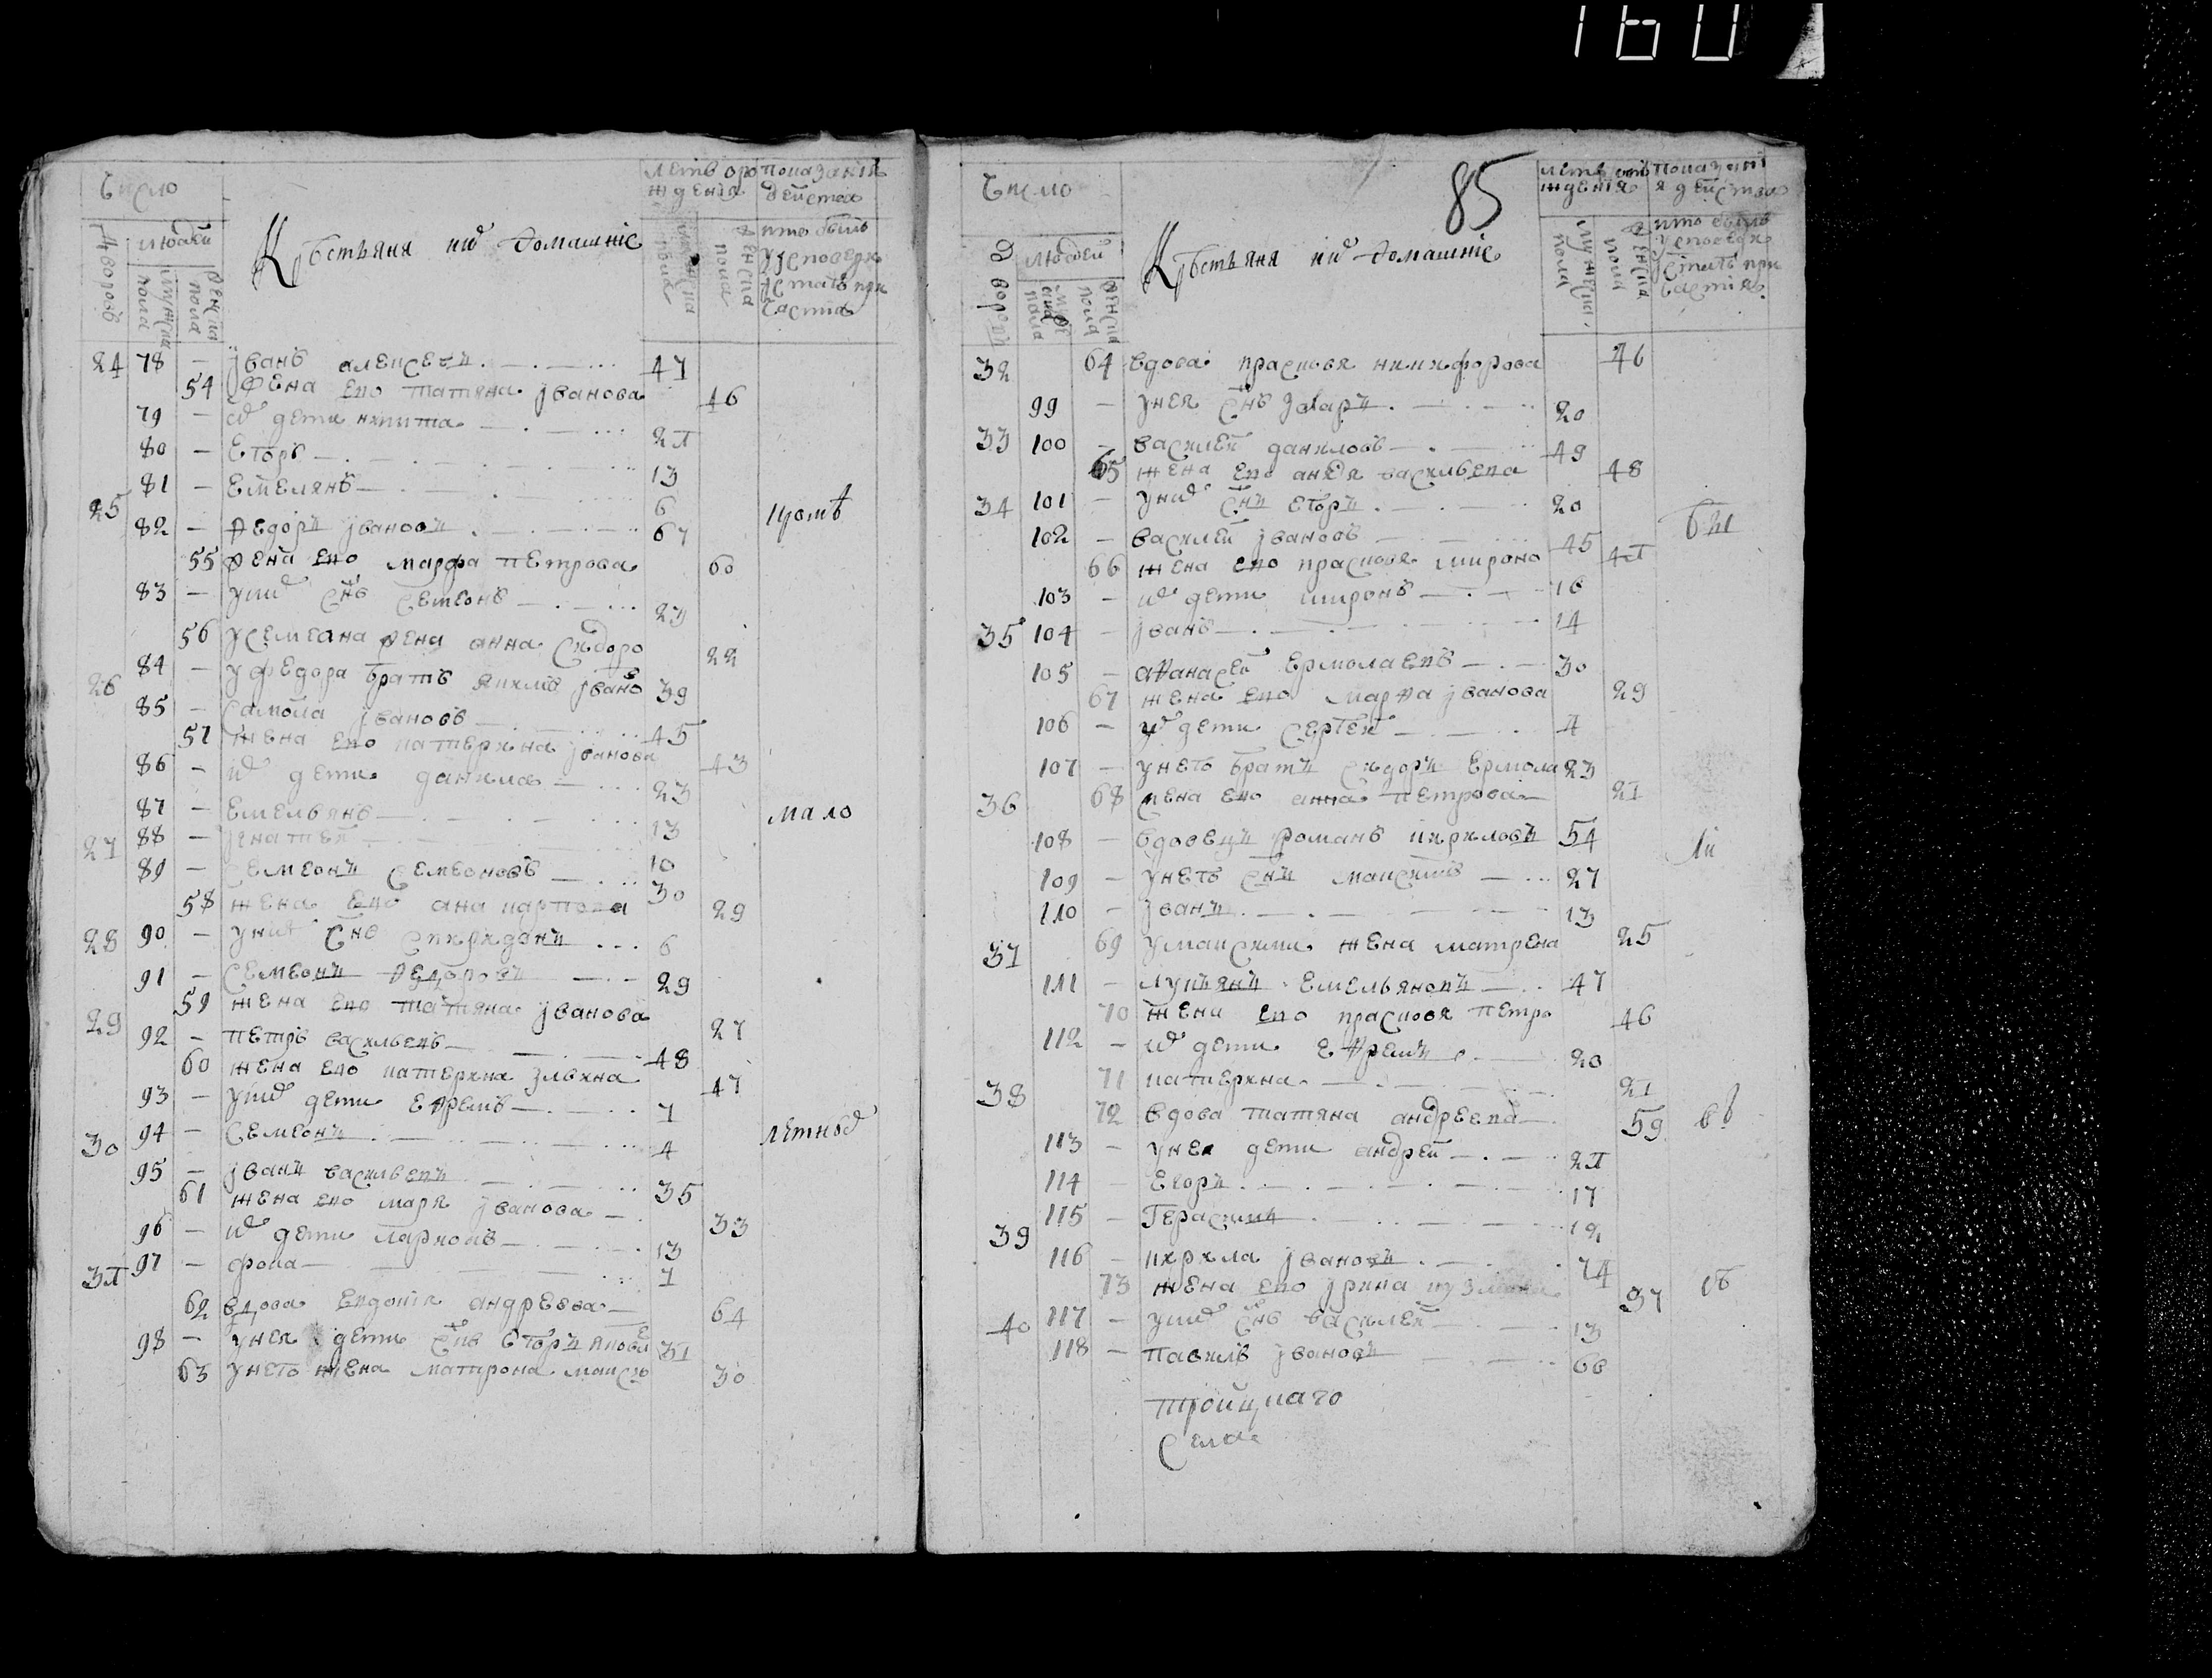 160
Число
летъ оро
ждения
показания
действа
дворовъ
людей
мужеска
пола
женска
пола
Крестьяня ихъ домашние
мужеска
пола
женска
пола
кто былъ
у исповеди
и стаго при
частия
24 78 – Iванъ алексеевъ 47
54 жена ево татяна Iванова 46
79 – ихъ дети никита 21
80 – Егоръ 13
81 – Емелянъ 6
25 82 – Федоръ Iвановъ 67
55 жена ево марфа петрова 60
83 – у ихъ снъ семеонъ 23
56 у семеона жена анна сидоро 22
84 – у федора братъ якимъ Iвано 39
26 85 – самойла Iвановъ 45
57 жена ево катерина Iванова 43
86 – ихъ дети данила 23
87 – Емельянъ 13
88 – Игнатей 10
27 89 – Семеонъ Семеоновъ 30
58 жена ево ана карпова 29
90 – у нихъ снъ спиридонъ 6
28 91 – Семеонъ Федоровъ 29
59 жена ево татяна Iванова 27
29 92 – петръ васильевъ 48
60 жена ево катерина ильина 47
93 – у ихъ дети Ефремъ 7
94 – Семеонъ 4
30 95 – Iванъ васильевъ 35
61 жена ево маря Iванова 33
96 – ихъ дети ларионъ 13
97 – фока 7
31 62 вдова Евдокия андреева 64
98 – у нея дети снъ Егоръ 31
63 у него жена матрона макси 30
мало
летныхъ
85
Число
летъ оро
ждения
показани
я действа
дворовъ
людей
мужес
ка
пола
женска
пола
Крестьяня ихъ домашние
мужеска
пола
женска
пола
кто былъ
у исповеди
и стаго при
частия
32 64 вдова прасковя никифорова 46
99 – у нея снъ Захаръ 20
33 100 – василей даниловъ 49
65 жена ево анна васильева 48
34 101 – у ихъ снъ Егоръ 20
102 – василей Iвановъ 45
66 жена ево прасковя мироно 41
103 – ихъ дети миронъ 16
35 104 – Iванъ 14
105 – афанасей Ермолаевъ 30
67 жена ево марфа Iванова 29
106 – ихъ дети сергей 4
107 – у него братъ сидоръ Ермола 23
36 68 жена ево анна петрова 21
108 – вдовецъ романъ кириловъ 54
109 – у него снъ максимъ 27
110 – Iванъ 13
37 69 у максима жена матрена 25
111 – лукъянъ Емельяновъ 47
70 жена ево прасковя петро 46
112 – ихъ дети Ефремъ 20
71 катерина 21
38 72 вдова татяна андреева 59
113 – у нея дети андрей 21
114 – Егоръ 17
115 – Герасимъ 12
39 116 – кирила Iвановъ 74
73 жена ево Iрина 37
40 117 – у ихъ снъ василей 13
118 – павилъ Iвановъ 60
троицкаго
села